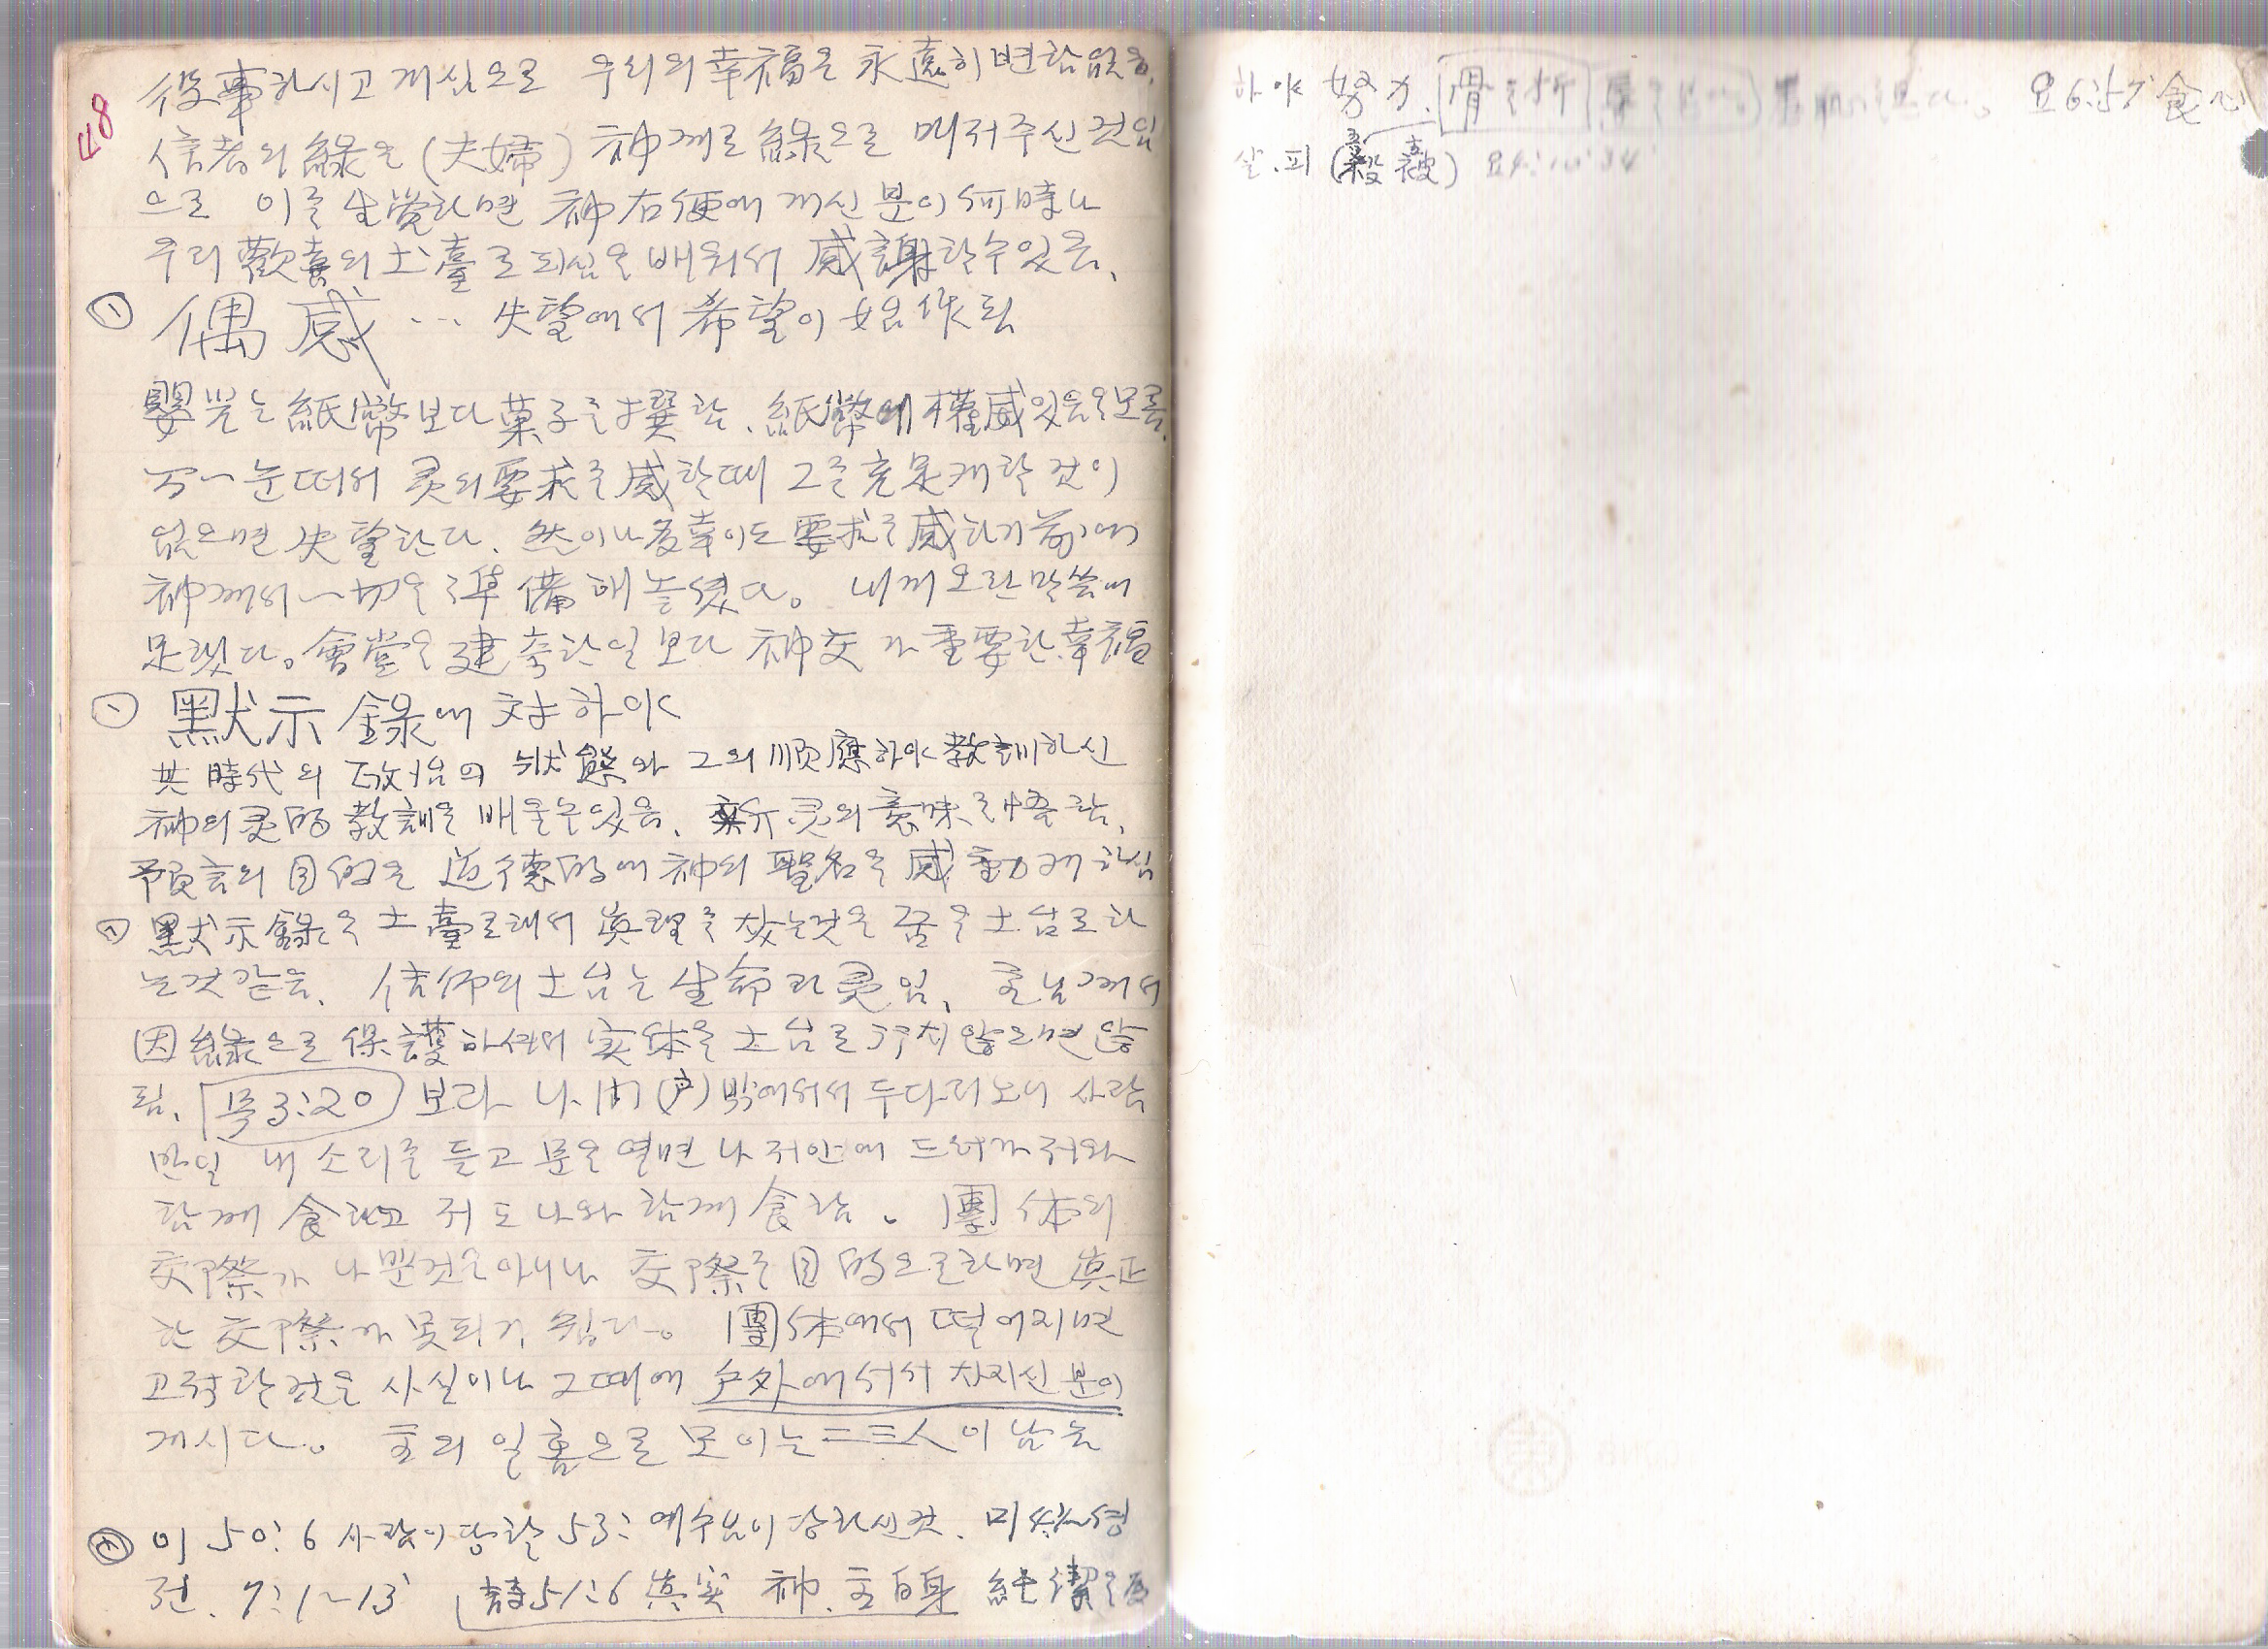 48
役事하시고 게심으로 우리의 幸福은 永遠히 변함없음.
信者의 緣을 (夫婦) 神께로 緣으로 매저주신 것임
으로 이를 生覺하면 神右便에 게신 분이 何時나
우리 歡喜의 土臺로 되심을 배워서 感謝할수있음、
① 偶感 … 失望에서 希望이 始作됨
嬰兒는 紙幣보다 菓子를 撰함、紙幣에 權威있음을 모름、
万一 눈떠서 灵의 要求를 感할때 그를 充足케할 것이
없으면 失望한다、然이나 多幸이도 要求를 感하기 前에
神께서 一切을 準備해 놓셨다。 내게 오란 말씀에
足렸다。會堂을 建築한일보다 神交가 重要한 幸福
① 默示錄에 対하야
其時代의 政治의 狀態와 그의 順應하야 敎訓하신
神의 灵的 敎訓을 배울수있음、 灵의 意味를 悟함、
預言의 目的은 道德的에 神의 聖名을 感動케 하심
① 默示錄을 土臺로해서 眞理를 찾는것은 꿈을 土台로하
는것같음、 信仰의 土台는 生命과 灵임、 主님께서
因緣으로 保護하셔서 実体을 土台로 주지 않으면 않
됨、 묵3:20 보라 나 門(戶) 밖에서서 두다리노니 사람
만일 내 소리를 듣고 문을 열면 나 저안에 드러가 저와
함께 食하고 저도 나와 함께 食함。 團体의
交際가 나뿐것은 아니나 交際를 目的으로하면 眞正
한 交際가 못되기 쉽다。 團体에서 떨어지면
고적한 것은 사실이나 그때에 戶外에 서서 차지신 분이
게시다。 主의 일홈으로 모이는 二三人이 남음
이 50:6 사람이 당할 53: 예수님이 당하신것、 미 성
전、 7:1~13 詩51:6 眞実 神、主自身 純潔을 爲
하야 努力、骨を折 요6:57 食心
살、피 (穀 皮)